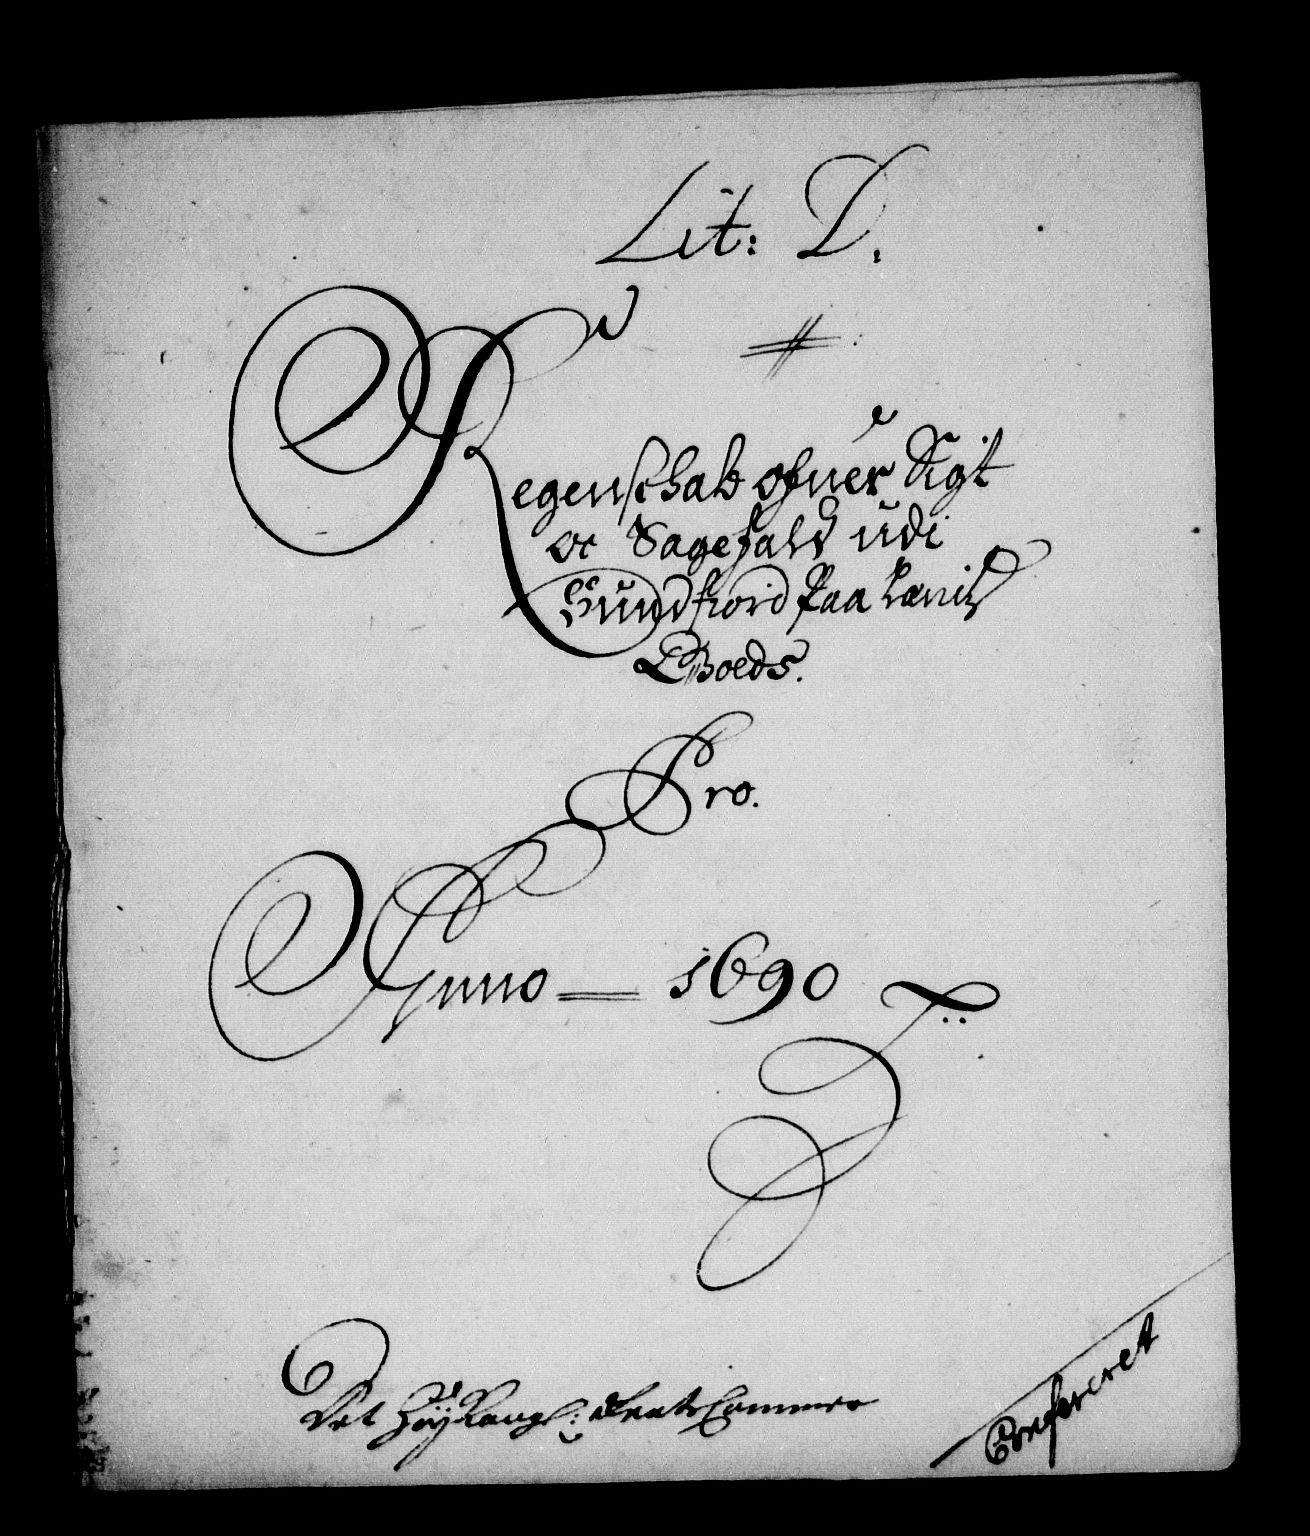 Lit: D.
Regenschab ofuer Sigt
oc Sagefald udi
Sundfiord paa
Goeds.
Pro.
Anno 1690
Det Höy Kongl: Rente Cammer
Confereret